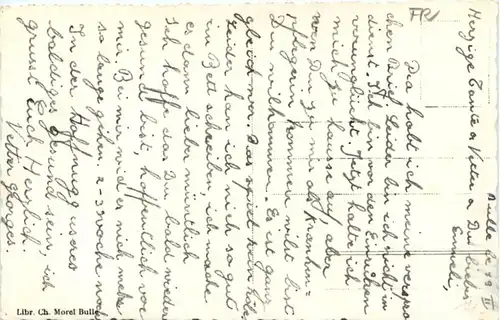 FR
Bulle le 19 III
Herzige Tante u Vetter u Du liebe
Emmeli,
Da habt ich meine verspro
chen Brief leider bin ich nicht im
dienst. Ich bin vor den Einrücken
verunglückt jetzt halte ich
mich zu hause auf, aber
wen Du zu mir als Kranken-
pflegerin kommen wilst bist
Du wilkommen. Es ist ganz
gleich wer. Das spielt kein
Leider kan ich nich so gut
im Bett schreiben, ich mache
es dann lieber mündlich
Ich hoffe das Du bald wieder
gesund bist, hoffentlich vor
mir. Bei mir wird es nich mehr
so lange gehen, 2-3 woche noch
In der Hoffnugg unseres
baldiges Gesund sein, ich
grüsst Euch Herzlich
Vetter Georges.
Libr. Ch. Morel Bulle